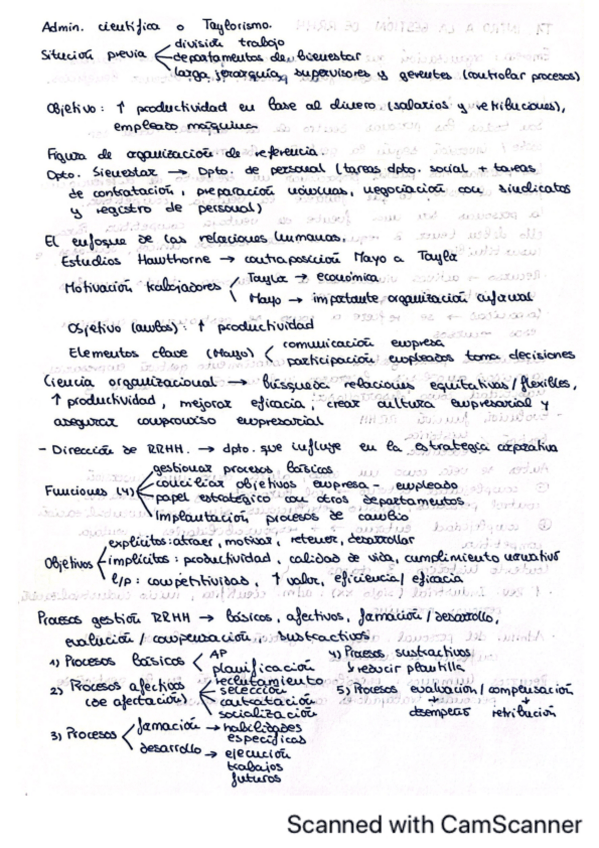 Admin. científica o Taylorismo.
Situción previa
división trabajo
departamentos de bienestar
larga jerarquía, supervisores y gerentes (controlar procesos)
Objetivo: ↑ productividad en base al dinero (salarios y retribuciones),
empleado máquina
Figura de organización de referencia.
Dpto. Bienestar → Dpto. de personal (tareas dpto. social + tareas
de contratación, preparación nóminas, negociación con sindicatos
y registro de personal)
El enfoque de las relaciones humanas.
Estudios Hawthorne → contraposición Mayo a Taylor
Motivación trabajadores
Taylor → económica
Mayo → importante organización informal
Objetivo (ambos): ↑ productividad
Elementos clave (Mayo)
comunicación empresa
participación empleados toma decisiones
Ciencia organizacional → búsqueda relaciones equitativas/flexibles,
↑ productividad, mejorar eficacia, crear cultura empresarial y
asegurar compromiso empresarial
- Dirección de RRHH. → dpto. que influye en la estrategia corporativa
Funciones (4)
gestionar procesos básicos
conciliar objetivos empresa - empleado
papel estratégico con otros departamentos
implantación procesos de cambio
Objetivos
explícitos: atraer, motivar, retener, desarrollar
implícitos: productividad, calidad de vida, cumplimiento normativo
l/p: competitividad, ↑ valor, eficiencia/eficacia
Procesos gestión RRHH → básicos, afectivos, formación/desarrollo,
evalución/compensación, sustractivos
1) Procesos básicos
AP
planificación
2) Procesos afectivos
(de afectación)
reclutamiento
selección
contratación
socialización
3) Procesos
formación → habilidades
específicas
desarrollo → ejecución
trabajos
futuros
4) Procesos sustractivos
↳ reducir plantilla
5) Procesos evaluación/compensación
↓ ↓
desempeño retribución
Scanned with CamScanner